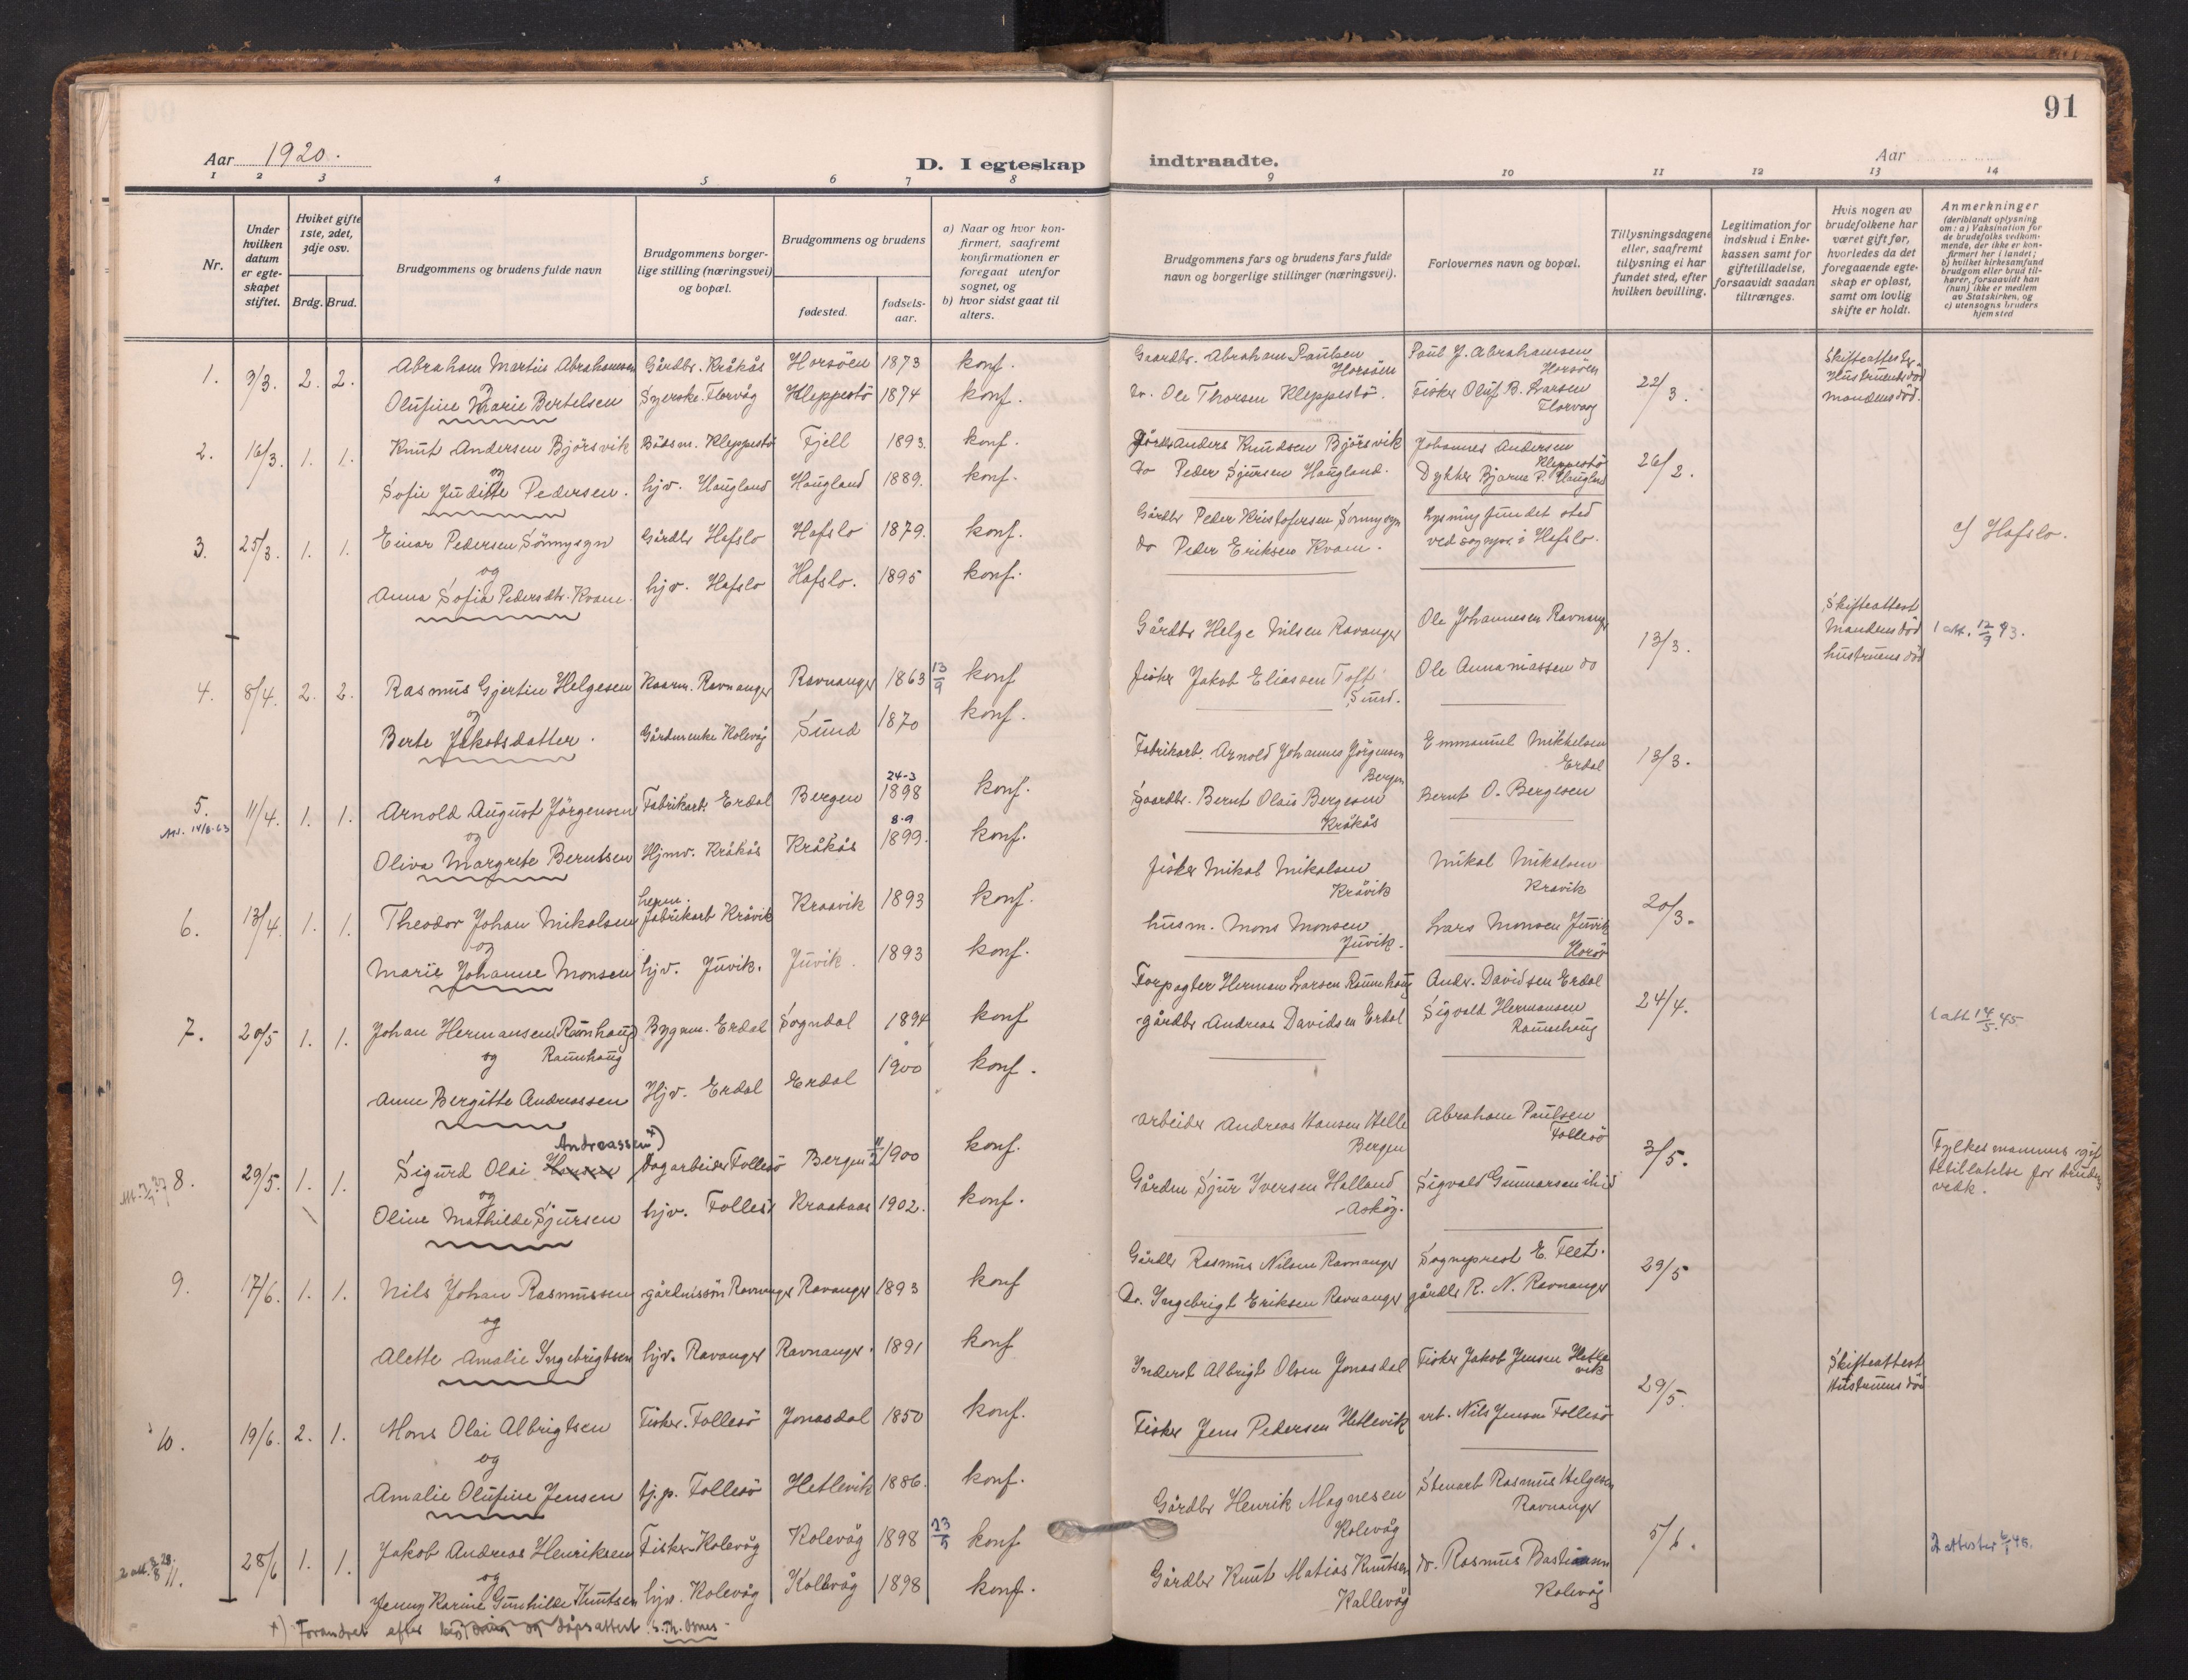 91
Aar 1920.
D. I egteskap indtraadte.
Aar
1 2 3 4 5 6 7 8 9 10 11 12 13 14
Nr.
Under hvilken datum er egteskapet stiftet.
Hviket gifte 1ste, 2det, 3dje osv.
Brdg. Brud.
Brudgommens og brudens fulde navn
Brudgommens borgerlige stilling (næringsvei) og bopæl.
Brudgommens og brudens
fødested.
fødselsaar.
a) Naar og hvor konfirmert, saafremt konfirmationen er foregaat utenfor sognet, og
b) hvor sidst gaat til alters.
Brudgommens fars og brudens fars fulde navn og borgerlige stillinger (næringsvei).
Forlovernes navn og bopæl.
Tillysningsdagene eller, saafremt tillysning ei har fundet sted, efter hvilken bevilling.
Legitimation for indskud i Enkekassen samt for giftetilladelse, forsaavidt saadan tiltrænges.
Hvis nogen av brudefolkene har været gift før, hvorledes da det foregaaende egteskap er opløst, samt om lovlig skifte er holdt.
Anmerkninger (deriblandt oplysning om: a) Vaksination for de brudefolks vedkommende, der ikke er konfirmert her i landet; b) hvilket kirkesamfund brudgom eller brud tilhører, forsaavidt han (hun) ikke er medlem av Statskirken, og c) utensogns bruders hjemsted
1. 9/3. 2. 2. Abraham Martin Abrahamsen Gårdbr. Kråkås Horsöen 1873 konf. Gaardbr. Abraham Paulsen Horsöen Paul J. Abrahamsen Horsöen 22/3. Skifteattester Hustruens död
og
Olufine Marie Bertelsen Syerske. Florvåg Kleppestö 1874 konf. Do. Ole Thorsen Kleppestö. Fisker Oluf B. Larsen Florvaag mandens död.
2. 16/3. 1. 1. Knut Andersen Björsvik Bådsm. Kleppestö Fjell 1893. konf. Anders Knudsen Björsvik Johannes Andersen Kleppestö 26/2.
og
Sofie Juditte Pedersen. hjv. Haugland Haugland 1889. konf. do Peder Sjursen Haugland. Dykker Bjarne P. Haugland
3. 25/3. 1. 1. Einar Pedersen Sönnysyn Gårdbr Hafslo Hafslo 1879. konf. Gårdbr Peder Kristofersen Sonnysyn Lysning fundet sted c) Hafslo.
og
Anna Sofia Pedersdtr. Kvam. hjv. Hafslo Hafslo. 1895 konf. do Peder Eriksen Kvam. ved sognpr. i Hafslo.
4. 8/4. 2. 2. Rasmus Gjertin Helgesen Kaarm. Ravnanger Ravnanger 1863 13/9 konf Gårdbr Helge Nilsen Ravanger Ole Johannesen Ravnang 13/3. Skifteattest Mandens död hustruens död 1 att. 12/9 43.
og
Berte Jakobsdatter. Gårdmenke Kolevåg Sund 1870 konf. Fisker Jakob Eliassen Toft Sund. Ole Annaniassen do
5. 11/4. 1. 1. Arnold August Jörgensen Fabrikarb. Erdal Bergen 24-3 1898 konf. Fabrikarb. Arnold Johannes Jörgensen Bergen Emmanuel Mikkelsen Erdal 13/3.
og
Oliva Margrete Berntsen Hjmv. Kråkås Kråkås 8-9 1899. konf. Gaardbr. Bernt Olais Bergesen Kråkås Bernt O. Bergesen
6. 13/4. 1. 1. Theodor Johan Mikalsen Fabrikarb Kråvik Kraavik 1893 konf. Fisker Mikal Mikalsen Kråvik Mikal Mikalsen Kravik 20/3.
og
Marie Johanne Monsen hjv. Juvik. Juvik. 1893 konf. husm. Mons Monsen Juvik. Lars Monsen Juvik Horsö
7. 20/5 1. 1. Johan Hermansen Raunhaug Bygnm. Erdal Sogndal 1894 konf Forpagter Herman Larsen Raunehaug Andr. Davidsen Erdal 24/4. 1 att 14/5 45.
og Raunhaug
Anne Bergitte Andreassen Hjv. Erdal Erdal 1900 konf. gårdbr Andreas Davidsen Erdal Sigvald Hermansen Raunehaug
8. 29/5. 1. 1. Sigurd Olai Hansen Andreassen +) Dagarbeider Follesö Bergen 1900 konf. Arbeider Andreas Hansen Helle Bergen Abraham Paulsen Follesö 3/5. Fylkesmannens gif tetillatelse for bruden vedk.
og
Oline Mathilde Sjursen hjv. Folles Kraakaas 1902. konf. Gårdm Sjur Iversen Halland Asköy. Sigvald Gunnarsen ibid
9. 17/6. 1. 1. Nils Johan Rasmussen gårdmssön Ravnanger Ravanger 1893 konf Gårdbr Rasmus Nilsen Ravnanger Sogneprest E. Flet. 29/5
og
Alette Amalie Ingebrigtsen hjv. Ravanger Ravnanger. 1891 konf Do. Ingebrigt Eriksen Ravnanger gårdbr R. N. Ravnanger
10. 19/6. 2. 1. Mons Olai Albrigtsen Fisker. Follesö Jonasdal 1850 konf. Inderst Albrigt Olsen Jonasdal Fisker Jakob Jensen Hetlevik 29/5. Skifteattest Hustruens död
og
Amalie Olufine Jensen hj.p. Follesö Hetlevik 1886. konf. Fisker Jens Pedersen Hetlevik arb. Nils Jensen Follesö
11. 28/6 1. 1. Jakob Andreas Henriksen Fisker Kolevåg Kolevåg 1898 konf Gårdbr Henrik Magnesen Kolevåg Stenarb Rasmus Helgesen Ravnanger 5/6. 2 attester
og
Jenny Karine Gunhilde Knutsen hjv. Kolevåg Kollevåg 1898 konf. Gårdbr Knut Matias Knutsen Kallevåg do. Rasmus Bastiansen Kolevåg
+) Forandret efter dåpsattest